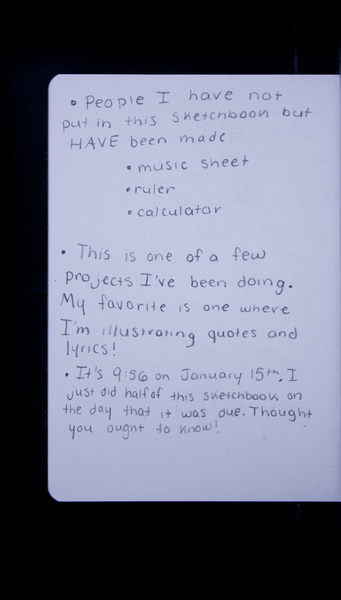 • People I have not
put in this sketchbook but
HAVE been made
• music sheet
• ruler
• calculator
• This is one of a few
projects I've been doing.
My favorite is one where
I'm illustrating quotes and
lyrics!
• It's 9:56 on January 15th. I
just did half of this sketchbook on
the day that it was due. Thought
you ought to know!